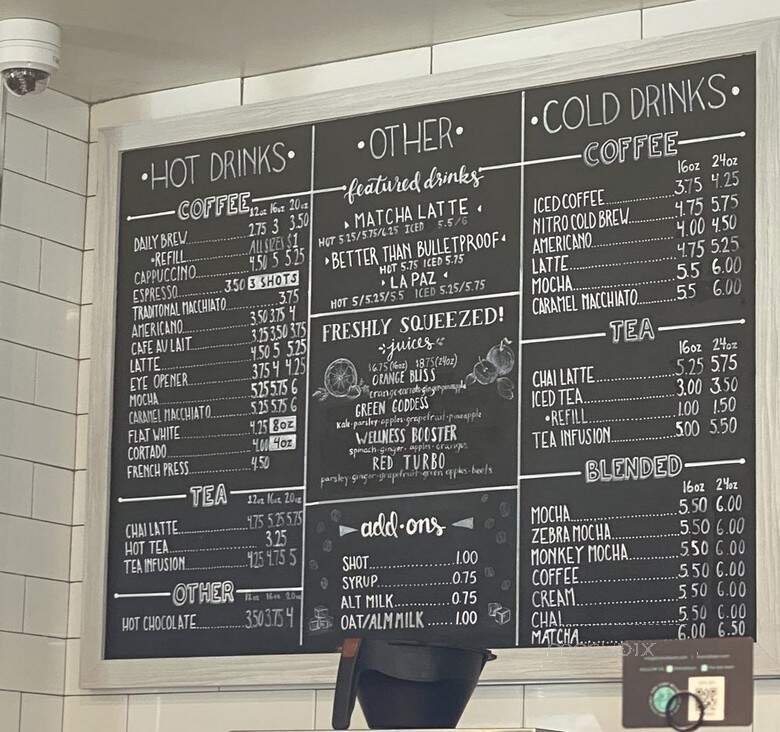 HOT DRINKS
COFFEE 12oz 16oz 20oz
DAILY BREW 2.75 3 3.50
•REFILL ALL SIZES $1
CAPPUCCINO 4.50 5 5.25
ESPRESSO 3.50 3 SHOTS
TRADITONAL MACCHIATO 3.75
AMERICANO 3.50 3.75 4
CAFE AU LAIT 3.25 3.50 3.75
LATTE 4.50 5 5.25
EYE OPENER 3.75 4 4.25
MOCHA 5.25 5.75 6
CARAMEL MACCHIATO 5.25 5.75 6
FLAT WHITE 4.25 8oz
CORTADO 4.00 4oz
FRENCH PRESS 4.50
TEA 12oz 16oz 20oz
CHAI LATTE 4.75 5.25 5.75
HOT TEA 3.25
TEA INFUSION 4.25 4.75 5
OTHER 12oz 16oz 20oz
HOT CHOCOLATE 3.50 3.75 4
•OTHER•
featured drinks
MATCHA LATTE
HOT 5.25/5.75/6.25 ICED 5.5/6
BETTER THAN BULLETPROOF
HOT 5.75 ICED 5.75
LA PAZ
HOT 5/5.25/5.5 ICED 5.25/5.75
FRESHLY SQUEEZED!
juices
$6.75 (16oz) $8.75 (24oz)
ORANGE BLISS
orange·carrots·ginger·pineapple
GREEN GODDESS
kale·parsley·apples·grapefruit·pineapple
WELLNESS BOOSTER
spinach·ginger·apples·oranges
RED TURBO
parsley·ginger·grapefruit·green apples·beets
add·ons
SHOT 1.00
SYRUP 0.75
ALT MILK 0.75
OAT/ALM MILK 1.00
•COLD DRINKS•
COFFEE
16oz 24oz
ICED COFFEE 3.75 4.25
NITRO COLD BREW 4.75 5.75
AMERICANO 4.00 4.50
LATTE 4.75 5.25
MOCHA 5.5 6.00
CARAMEL MACCHIATO 5.5 6.00
TEA
16oz 24oz
CHAI LATTE 5.25 5.75
ICED TEA 3.00 3.50
•REFILL 1.00 1.50
TEA INFUSION 5.00 5.50
BLENDED
16oz 24oz
MOCHA 5.50 6.00
ZEBRA MOCHA 5.50 6.00
MONKEY MOCHA 5.50 6.00
COFFEE 5.50 6.00
CREAM 5.50 6.00
CHAI 5.50 6.00
MATCHA 6.00 6.50